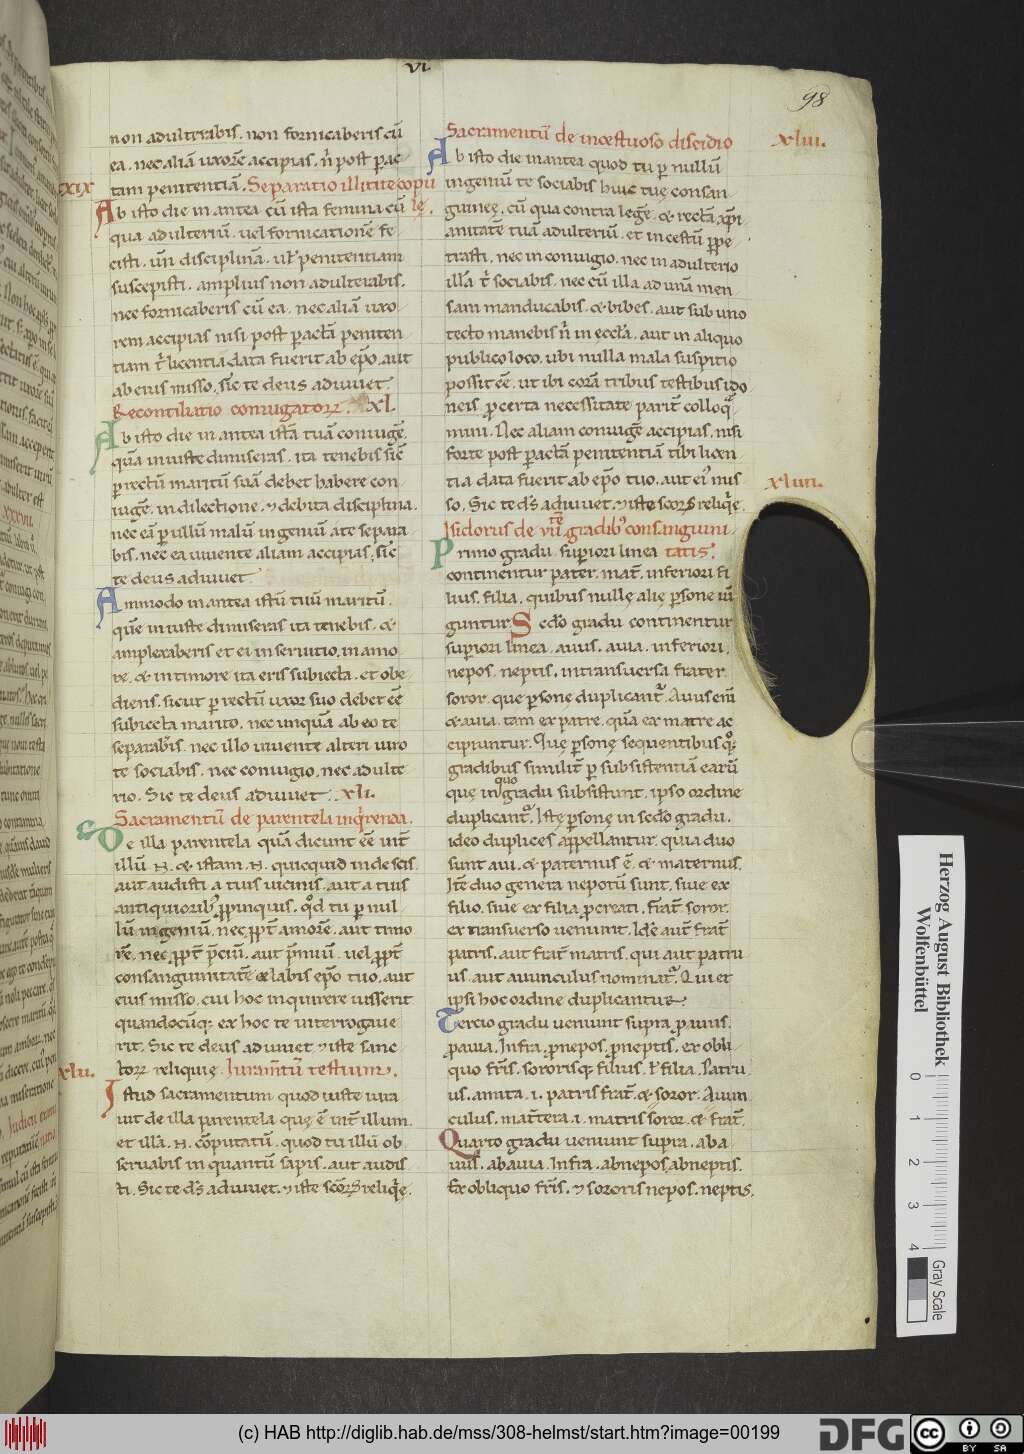 VI
98
non adulterabis. non fornicaberis cū
ea. nec aliā uxorē accipias. n̄ post pac-
tam penitentiā. Separatio illicite copu
XIX
Ab isto die in antea cū ista femina cū lę.
qua adulteriū. uel fornicationē fe-
cisti. un̄ disciplinā. ut penitentiam
suscepisti. amplius non adulterabis.
nec fornicaberis cū ea. nec aliā uxo-
rem accipias nisi post pactā peniten-
tiam t̄ licentia data fuerit ab ep̄o. aut
ab eius misso. sic te deus adiuuet.
Reconciliatio coniugatorꝝ. XL.
Ab isto die in antea istā tuā coniugē.
quā iniuste dimiseras. ita tenebis sic̄
p rectū maritū suā debet habere con-
iugē. in dilectione. ⁊ debita disciplina.
nec eā p ullū malū ingeniū a te separa-
bis. nec ea uiuente aliam accipias. sic
te deus adiuuet.
Ammodo in antea istū tuū maritū.
quē iniuste dimiseras ita tenebis. &
amplexaberis et ei in seruitio. in amo-
re. & in timore ita eris subiecta. et obe-
diens. sicut p rectū uxor suo debet ēē
subiecta marito. nec unquā ab eo te
separabis. nec illo uiuente alteri uiro
te sociabis. nec coniugio. nec adulte-
rio. Sic te deus adiuuet. XLI.
Sacramentū de parentela inqrenda.
De illa parentela quā dicunt ēē int̄
illū .N. & istam .N. quicquid inde scis.
aut audisti a tuis uicinis. aut a tuis
antiquioribꝰ ppinquis. qd̄ tu p nul-
lū ingeniū. nec ppt̄ amorē. aut timo-
rē. nec ppt̄ p̄ciū. aut p̄miū. uel ppt̄
consanguinitatē celabis ep̄o tuo. aut
eius misso. cui hoc inquirere iusserit
quandocūq; ex hoc te interrogaue-
rit. Sic te deus adiuuet ⁊ iste sanc-
torꝝ reliquię. Iuram̄tū testium.
XLII.
Istud sacramentum quod iuste iura-
uit de illa parentela que ē int̄ illum.
et illā .N. cōputatū. quod tu illū ob-
seruabis in quantū sapis. aut audis-
ti. Sic te d̄s adiuuet. ⁊ iste scōꝝ reliqę.
Sacramentū de incestuoso discidio
XLIII.
Ab isto die in antea quod tu p nullū
ingeniū te sociabis huic tuę consan-
guineę. cū qua contra legē. & rectā xp̄i-
anitatē tuā adulteriū. et incestū ppe-
trasti. nec in coniugio. nec in adulterio
illā t̄ sociabis. nec cū illa ad unā men-
sam manducabis. & bibes. aut sub uno
tecto manebis n̄ in eccl̄a. aut in aliquo
publico loco. ubi nulla mala suspitio
possit ēē. ut ibi corā tribus testibus ido-
neis. p certa necessitate parit̄ colloq̄-
mini. Nec aliam coniugē accipias. nisi
forte post pactā penitentiā tibi licen-
tia data fuerit ab ep̄o tuo. aut eiꝰ mis-
XLIIII.
so. Sic te d̄s adiuuet. ⁊ iste scōꝝ reliqę.
Isidorus de vii. gradibꝰ consanguini-
Primo gradu supiori linea tatis.
continentur pater. mat̄. inferiori fi-
lius. filia. quibus nullę alię psone iū-
guntur. Scdo gradu continentur
supiori linea. auus. auia. inferiori.
nepos. neptis. intransuersa frater
soror. que psone duplicant̄. Auus eni
& auia. tam ex patre. quā ex matre ac-
cipiuntur. Que psonę sequentibus q̊;
gradibus similit̄ p subsistentiā earū
quę in quo gradu subsistunt. ipso ordine
duplicant̄. Istę psonę in scdo gradu.
ideo duplices appellantur. quia duo
sunt aui. & paternus ē. & maternus.
Itē duo genera nepotū sunt. siue ex
filio. siue ex filia pcreati. frat̄. soror.
ex transuerso ueniunt. Idē aut̄ frat̄
patris. aut frat̄ matris. qui aut patru-
us. aut auunculus nominat̄. Qui et
ipsi hoc ordine duplicantur.
Tercio gradu ueniunt supra pauus.
pauia. Infra. pnepos. pneptis. ex obli-
quo fr̄is. sororisq; filius. t̄ filia. Patru-
us. amita. i. patris frat̄. & soror. Auun-
culus. mat̄tera. i. matris soror. & frat̄.
Quarto gradu ueniunt supra. aba-
uus. abauia. Infra. abnepos. abneptis.
Ex obliquo fr̄is. ⁊ sororis nepos. neptis.
Herzog August Bibliothek
Wolfenbüttel
0 1 2 3 4
Gray Scale
(c) HAB http://diglib.hab.de/mss/308-helmst/start.htm?image=00199
DFG
cc BY SA